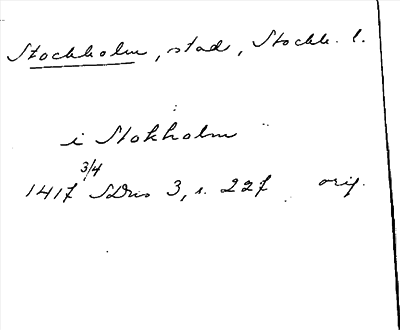 Stockholm, stad, Stockh. l.
i Stokholm
1417 3/4 SDns 3, s. 227 orig.